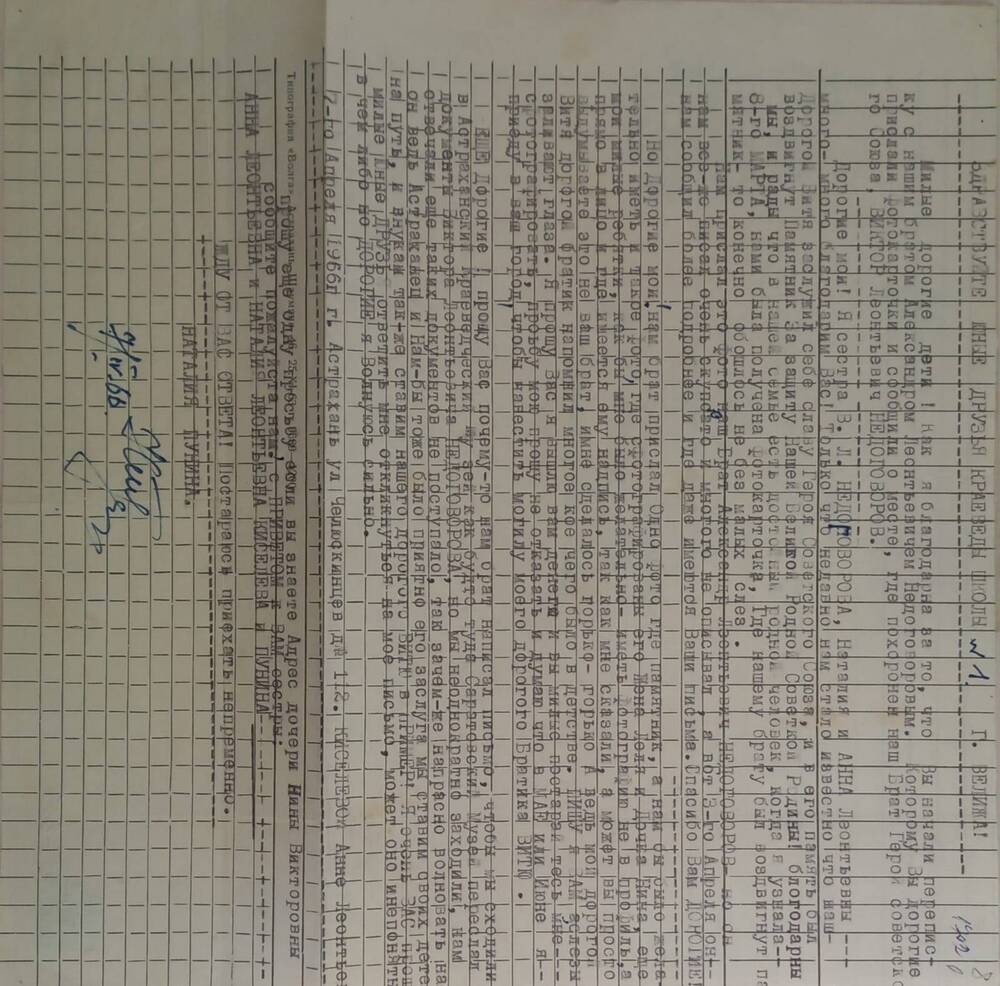 8
1902
ЗДРАВСТВУЙТЕ ЮНЫЕ ДРУЗЬЯ КРАЕВЕДЫ ШКОЛЫ №1 Г. ВЕЛИЖА!
Милые дорогие дети! Как я благодарна за то, что Вы начали перепис-
ку с нашим братом Александром Леонтьевичем Недоговоровым. Которому Вы дорогие
прислали фотокарточки и сообщили о месте, где похоронен наш Брат Герой советско
го Союза, ВИКТОР Леонтьевич НЕДОГОВОРОВ.
Дорогие мои! Я сестра В.Л. НЕДОГОВОРОВА, Наталия и АННА Леонтьевны
много-много благодарим Вас! только что недавно нам стало известно что наш-
Дорогой Витя заслужил себе славу Героя Советского Союза, и в его память был
воздвигнут Памятник за защиту Нашей Великой Родной Советской Родины! благодарны
мы, и рады что в нашей семье есть достойный родной человек, когда я узнала-
8-го МАРТА, нами была получена фотокарточка, Где нашему брату был воздвигнут па
мятник- то конечно обошлось не без малых слез.
Нам прислал это фото наш Брат Александр Леонтьевич НЕДОГОВОРОВ- но он
нам все-же писал очень скуповато и многого не описывал, а вот 3-го Апреля он--
нам сообщил более подробнее и где даже имеются Ваши письма. Спасибо Вам ДОРОГИЕ!
Но Дорогие мои! нам брат прислал Одно фото где памятник, а нам бы было жела-
тельно иметь и такое фото, где сфотографированы его жена Леля и Дочка Нина, еще
мои милые ребятки, как бы мне было желательно- иметь фотографию не в профиль, а
прямо в лицо и где имеется ему надпись, так как мне сказали, а может вы просто
выдумываете это не ваш брат, имне сделалось горько- горько А ведь мой дорогой
Витя дорогой братик напомнил многое кое чего было в детстве. ПИШУ Я ВАМ Аслезы
заливают глаза. Я прошу Вас я вышлю вам деньги и вы милые постарайтесь мне---
сфотографировать, просьбу мою прошу не отказать и думаю что в МАЕ или Июне я--
приеду в ваш город, чтобы навестить могилу моего дорогого Братика ВИТЮ.
ЕЩЕ Дорогие! прошу Вас почему-то нам брат написал письмо, чтобы мы сходили
в Астраханский Краеведческий музей как будто туда Саратовский Музей переслал
документы Виктора Леонтьевича НЕДОГОВОРОВА, но мы неоднократно заходили, нам
отвечали еще таких документов не поступало, так зачем-же напрасно волновать на
он ведь Астраханец и Нам-бы тоже было приятно его заслуга мы ставим своих дете
на путь, и внукам так-же ставим нашего дорогого ВИТЮ в пример! Я очень ВАС прош
милые юные друзья ответить мне откликнуться на мое письмо, может оно инепонятн
в чем либо но ДОРОГИЕ я Волнуюсь сильно.
7-го Апреля 1966 г. Астрахань ул Челюскинцев дй 112. КИСЕЛЕВОЙ Анне Леонтье
прошу еще одну просьбу если вы знаете Адрес дочери Нины Викторовны
сообщите пожалуйста нам, с ПРИВЕТОМ К ВАМ сестры:
АННА ЛЕОНТЬЕВНА И НАТАЛИЯ ЛЕОНТЬЕВНА КИСЕЛЕВА И ЛУНИНА
ЖДУ ОТ ВАС ОТВЕТА! Постараюсь приехать непременно.
НАТАЛИЯ ЛУНИНА.